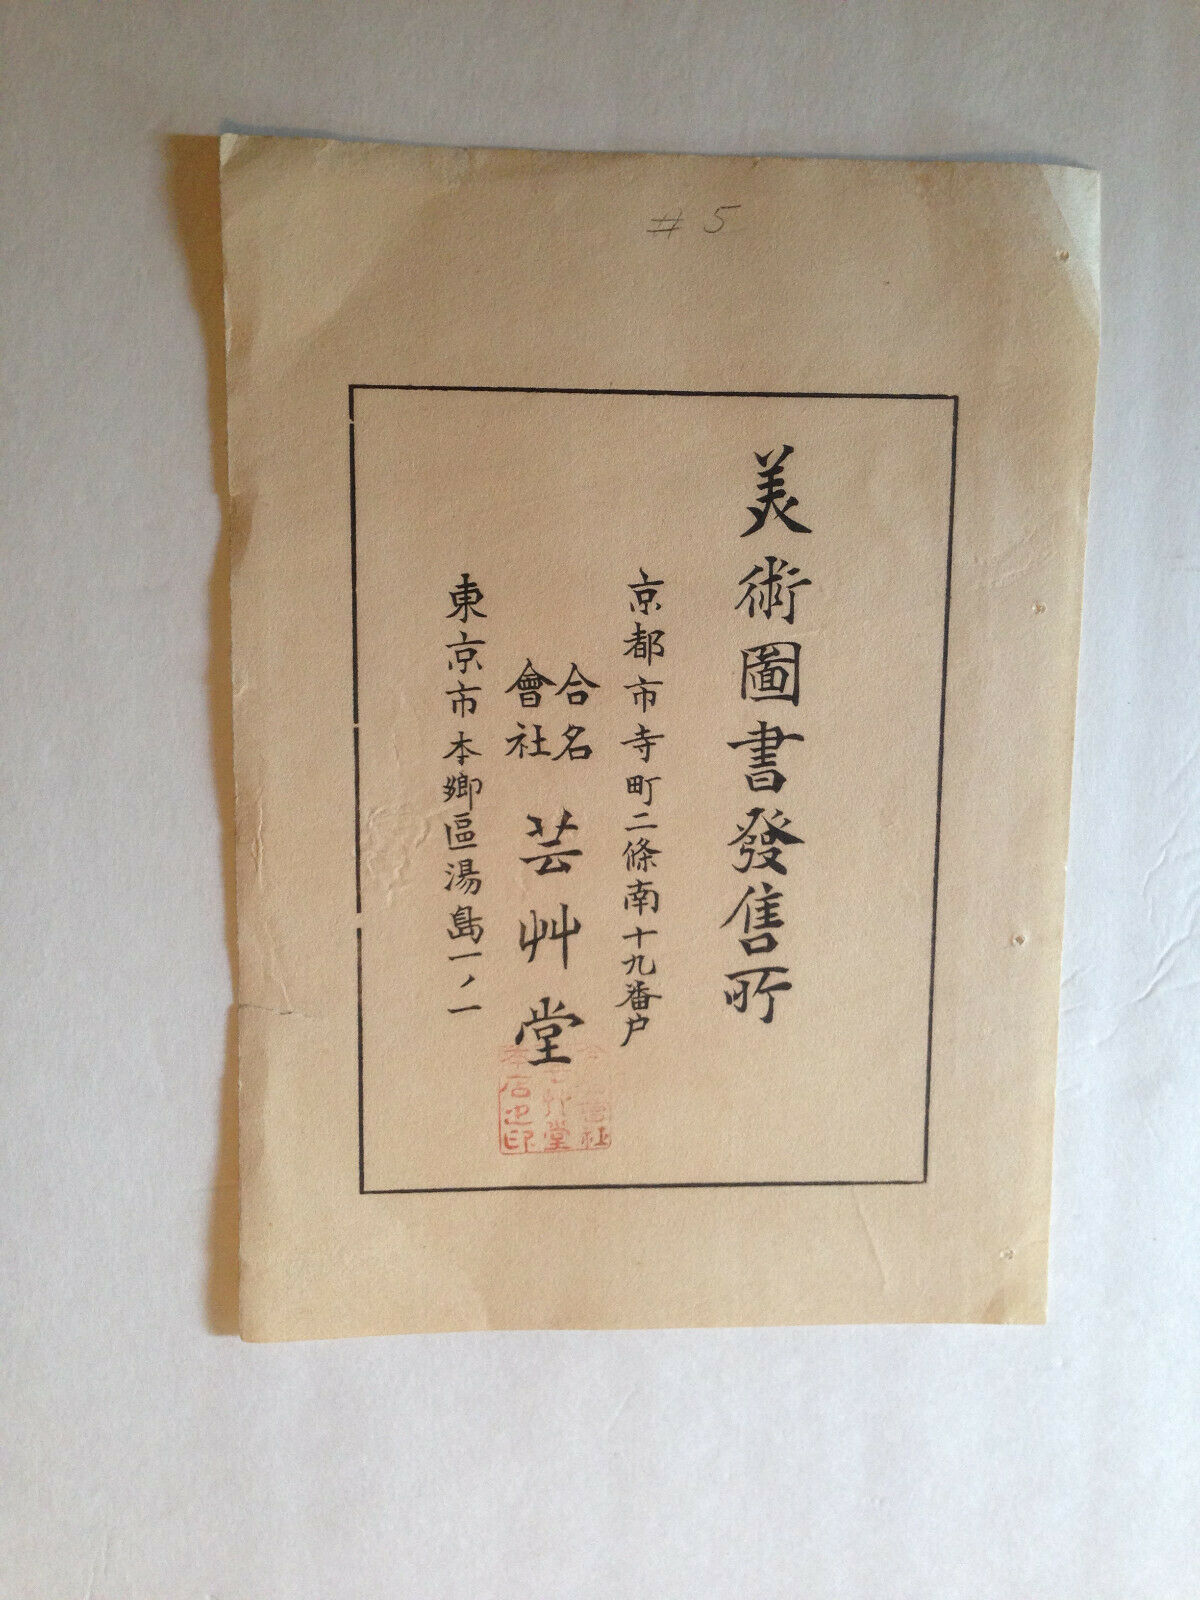 #5
美術圖書發售所
京都市寺町二條南十九番戸
合名會社 芸艸堂
東京市本鄉區湯島一ノ一
會社
芸艸堂
本店之印